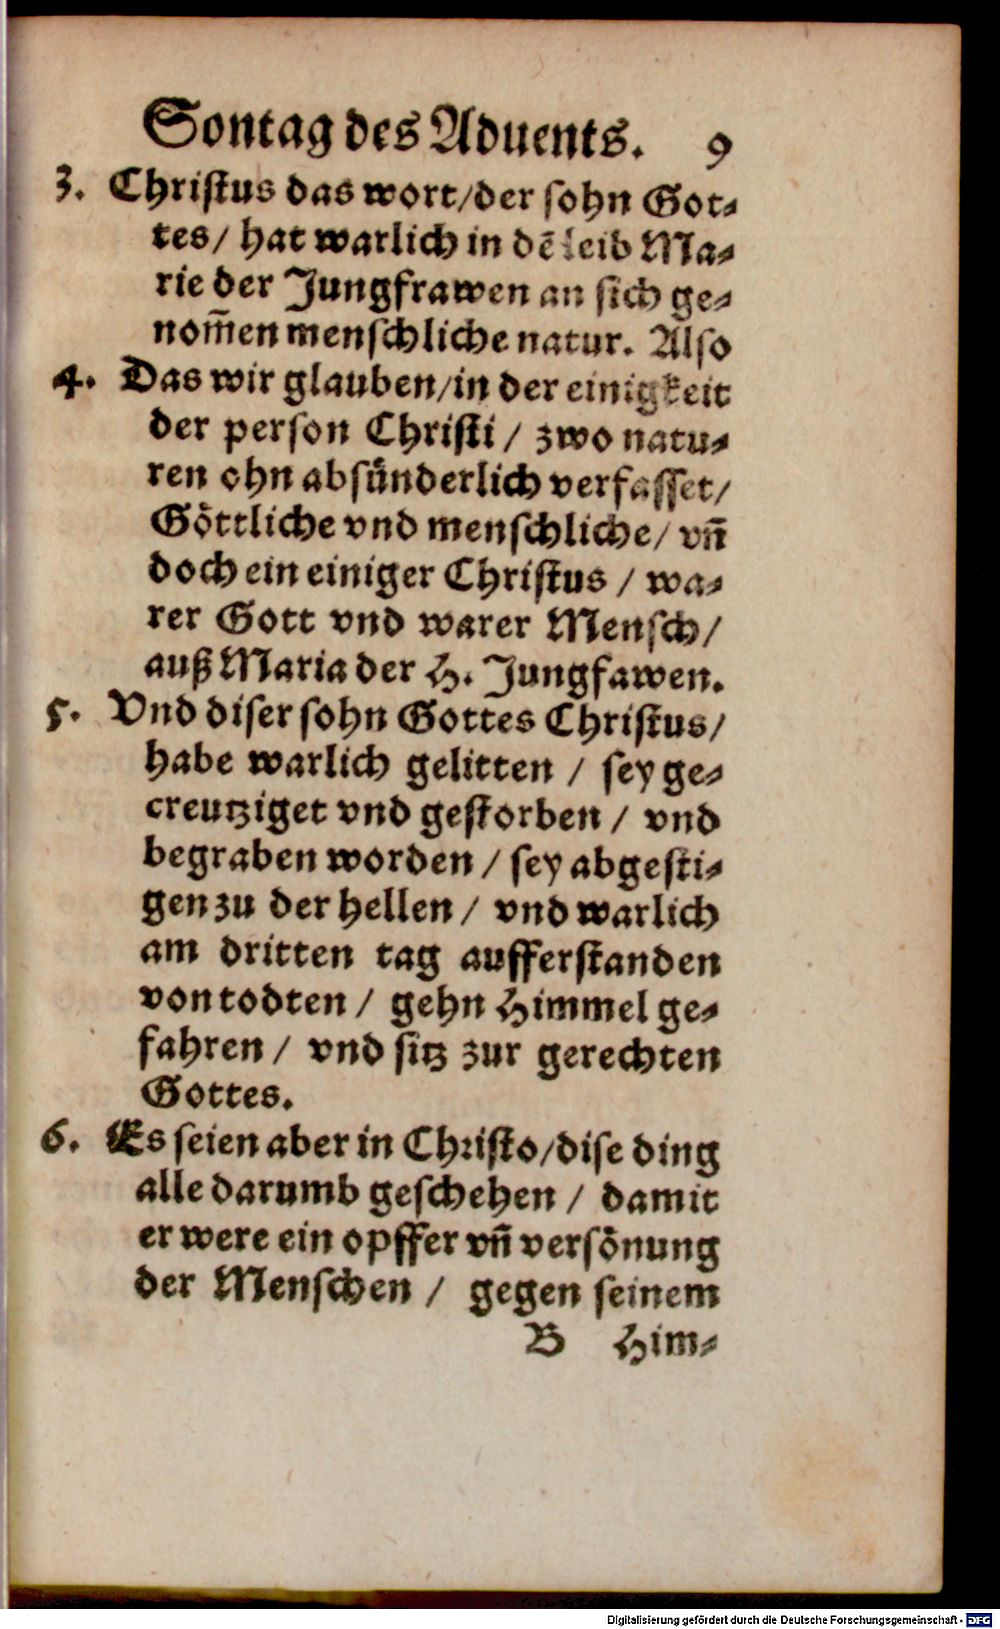 Sontag des Aduents. 9
3. Christus das wort/der sohn Got⸗
tes/ hat warlich in dē leib Ma⸗
rie der Jungfrawen an sich ge⸗
nom̄en menschliche natur. Also
4. Das wir glauben/in der einigkeit
der person Christi / zwo natu⸗
ren ohn absünderlich verfasset/
Göttliche vnd menschliche/ vn̄
doch ein einiger Christus / wa⸗
rer Gott vnd warer Mensch/
auß Maria der H. Jungfawen.
5. Vnd diser sohn Gottes Christus/
habe warlich gelitten / sey ge⸗
creutziget vnd gestorben / vnd
begraben worden / sey abgesti⸗
gen zu der hellen / vnd warlich
am dritten tag aufferstanden
von todten / gehn Himmel ge⸗
fahren / vnd sitz zur gerechten
Gottes.
6. Es seien aber in Christo/dise ding
alle darumb geschehen / damit
er were ein opffer vn̄ versönung
der Menschen / gegen seinem
B Him⸗
Digitalisierung gefördert durch die Deutsche Forschungsgemeinschaft - DFG